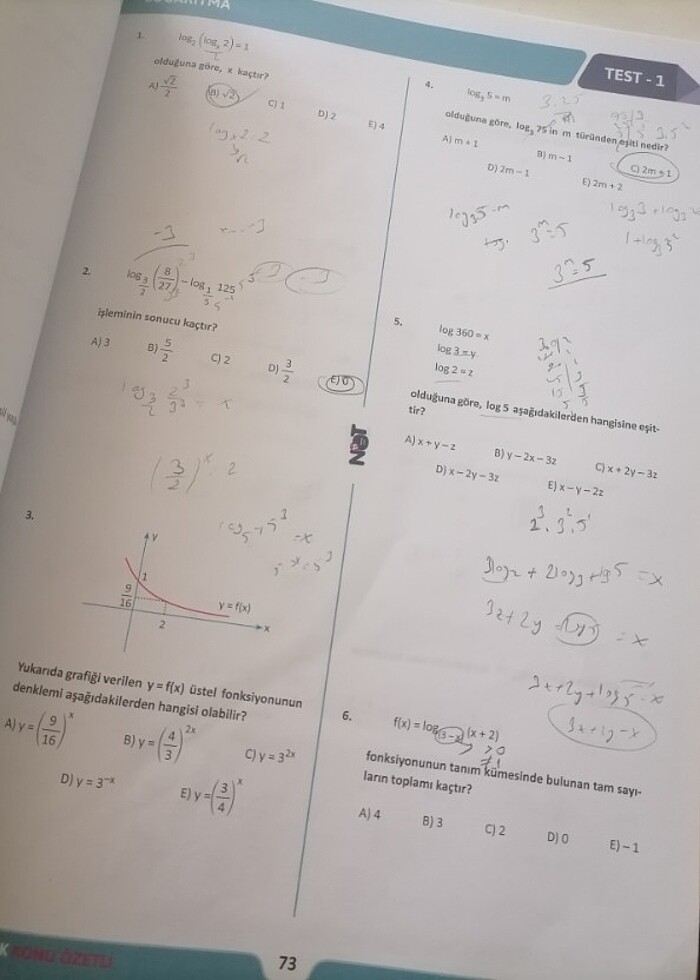 TEST - 1
1.
log₂(logₓ 2) = 1
olduğuna göre, x kaçtır?
A) √2/2
B) √2
C) 1
D) 2
E) 4
logₓ2 = 2
2.
log_(3/2) (8/27) – log_(1/5) 125
işleminin sonucu kaçtır?
A) 3
B) 5/2
C) 2
D) 3/2
E) 0
3.
y
1
9/16
2
y = f(x)
x
Yukarıda grafiği verilen y = f(x) üstel fonksiyonunun
denklemi aşağıdakilerden hangisi olabilir?
A) y = (9/16)^x
B) y = (4/3)^(2x)
C) y = 3^(2x)
D) y = 3^(–x)
E) y = (3/4)^x
4.
log₃ 5 = m
3.25
olduğuna göre, log₃ 75 in m türünden eşiti nedir?
A) m + 1
B) m – 1
C) 2m + 1
D) 2m – 1
E) 2m + 2
log₃5 = m
3^m = 5
3^m = 5
5.
log 360 = x
log 3 = y
log 2 = z
olduğuna göre, log 5 aşağıdakilerden hangisine eşit-
tir?
A) x + y – z
B) y – 2x – 3z
C) x + 2y – 3z
D) x – 2y – 3z
E) x – y – 2z
2³.3².5¹
3log2 + 2log3 + log5 = x
3z + 2y + log5 = x
3z + 2y + log5 = x
3z + 2y – x
6.
f(x) = log_(3 – x) (x + 2)
> 0
≠ 1
fonksiyonunun tanım kümesinde bulunan tam sayı-
ların toplamı kaçtır?
A) 4
B) 3
C) 2
D) 0
E) – 1
KONU ÖZETLİ
73